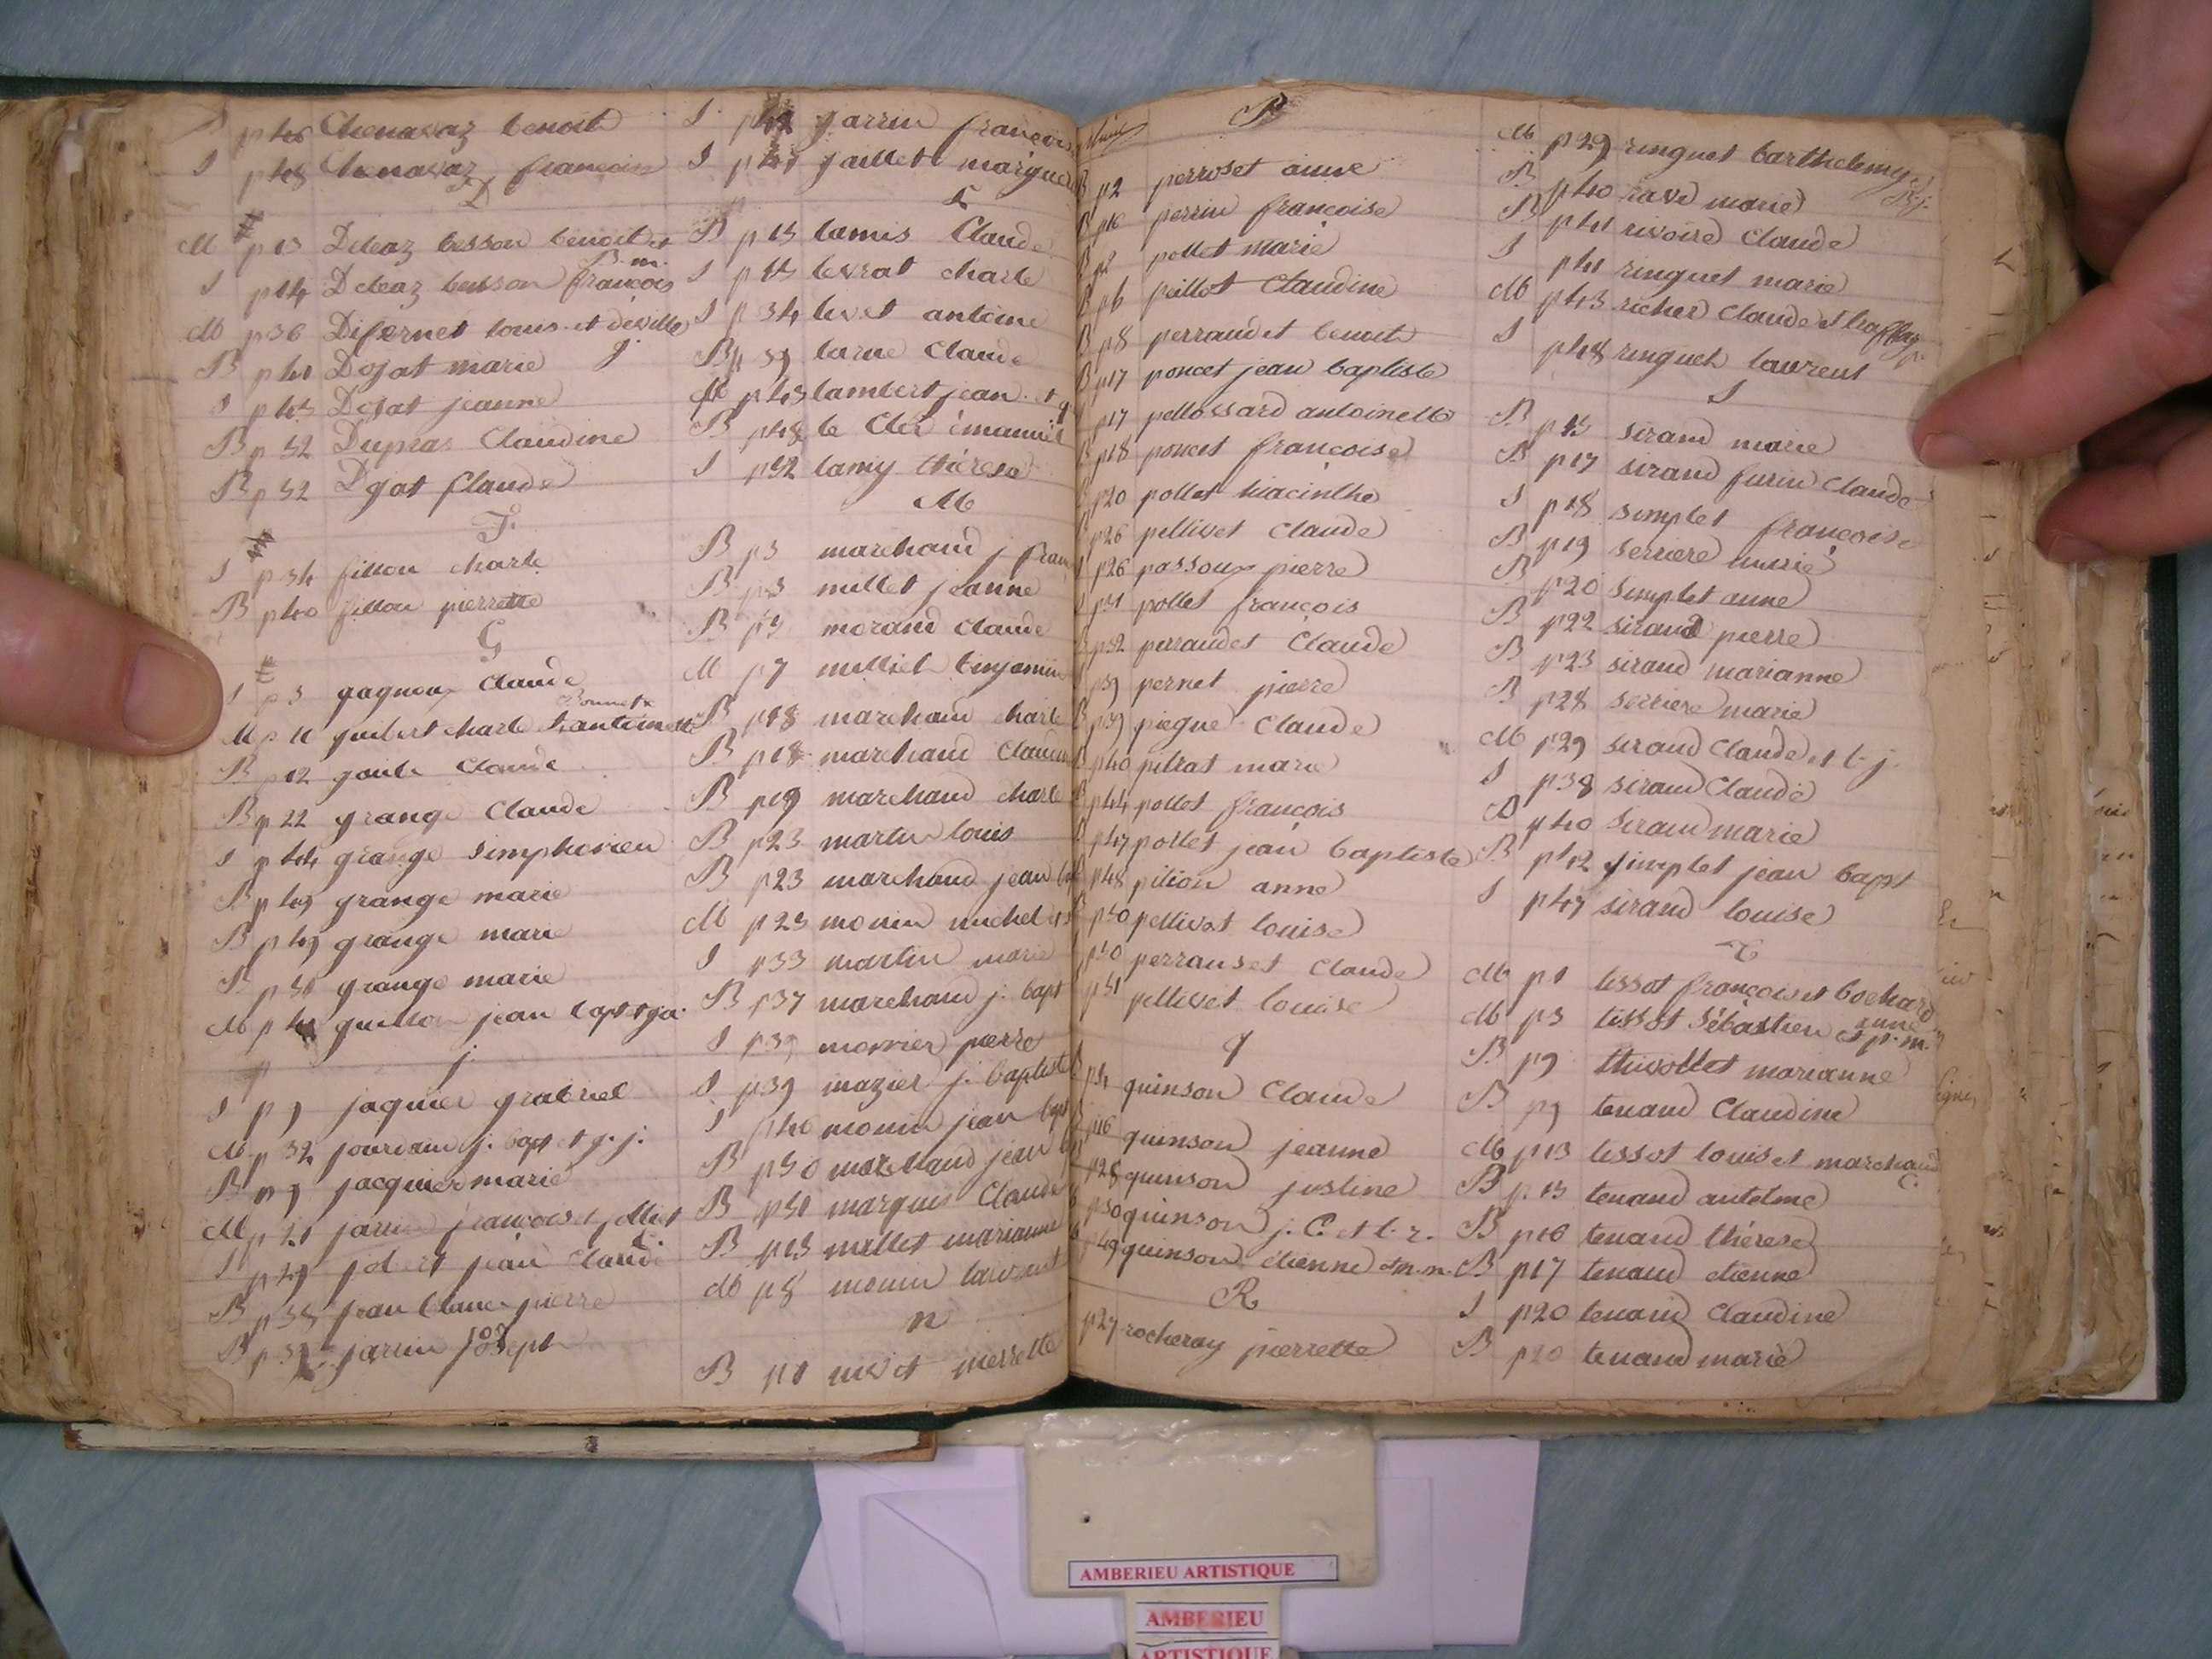 p46 Chenavaz benoit
S p48 Chenavaz francois
D
M p13 Deleaz besson benoit et
B. m.
S p14 Deleaz besson francois
M p36 Difernet louis et deville
j.
B p41 Dojat marie
S p45 Dojat jeanne
B p52 Dupras Claudine
B p52 Dojat Claude
F.
S p34 fillon charle
B p40 fillon pierrette
G
S p3 gagneux Claude
Bonnet
M p11 guibert charle et antoinette
B p12 goile Claude
B p22 grange Claude
S p44 grange simphorien
B p49 grange marie
B p49 grange marie
B p50 grange marie
M guillon jean bapt et ja.
j.
S p9 jaquier grabriel
M p32 jourdain j. bapt et j. j.
B p9 jacquier marie
M p21 jarrin francois et
S p49 jean Claude
B p38 jean Claude pierre
B jarrin joseph
S garrin francois
S jaillet margue
L
B p15 lamis Claude
S p15 levrat charle
S p34 livet antoine
B p39 larue Claude
M p43 lambert jean et g
B p48 le Cler émanuel
S p52 lamy thérese
M
B p3 marchand j fran
B p3 millet jeanne
B p5 morand claude
M p7 milliet binjamin
B p18 marchand charle
B p18 marchand Claude
B p19 marchand charle
B p23 martin louis
B p23 marchand jean b
M p25 monin michel et
S p33 martin marie
B p37 marchand j. bapt
S p39 monier pierre
S p39 mazier j. baptiste
S p40 monin jean bapt
B p50 marchand jean b
B p51 marquis Claude
B p13 millet marianne
M p8 monin laurent
n
B p1 nivet pierrette
P
p2 perroset anne
p10 perrin francoise
pollet marie
p6 peillot Claudine
p8 perraudet benoit
p17 poncet jean baptiste
p17 pellossard antoinette
p18 poncet francoise
p20 pollet hiacinthe
p26 pellivet Claude
p26 passoux pierre
p31 pollet francois
p32 perraudet Claude
p39 pernet pierre
p39 piegue Claude
p40 pitrat marie
p44 pollet francois
p47 pollet jean baptiste
p48 pition anne
p50 pellivet louise
p50 perrauset Claude
p51 pellivet louise
q
quinson Claude
p16 quinson jeanne
p28 quinson justine
p30 quinson j. C. et l. r.
p49 quinson étienne et m. m.
R
p27 rocheray pierrette
M p29 ringuet barthelemy et
B. j.
B p40 ravd marie
B p41 rivoire Claude
S p41 ringuet marie
M p43 richer Claude et
S p48 ringuet laurent
S
B p15 sirand marie
B p17 sirand furin Claude
S p18 simplet francoise
B p19 serriere marie
B p20 simplet anne
B p22 sirand pierre
B p23 sirand marianne
B p28 serriere marie
M p29 sirand Claude et l. j.
S p38 sirand Claude
B p40 sirand marie
B p42 simplet jean bapt
S p47 sirand louise
T
M p1 tissot francois et bochard
anne
M p3 tissot Sébastien et p. m.
B p9 thivollet marianne
B p9 tenand Claudine
M p13 tissot louis et marchand
C.
B p15 tenand antelme
B p16 tenand thérese
B p17 tenand étienne
S p20 tenand Claudine
B p20 tenand marie
AMBERIEU ARTISTIQUE
AMBERIEU
ARTISTIQUE